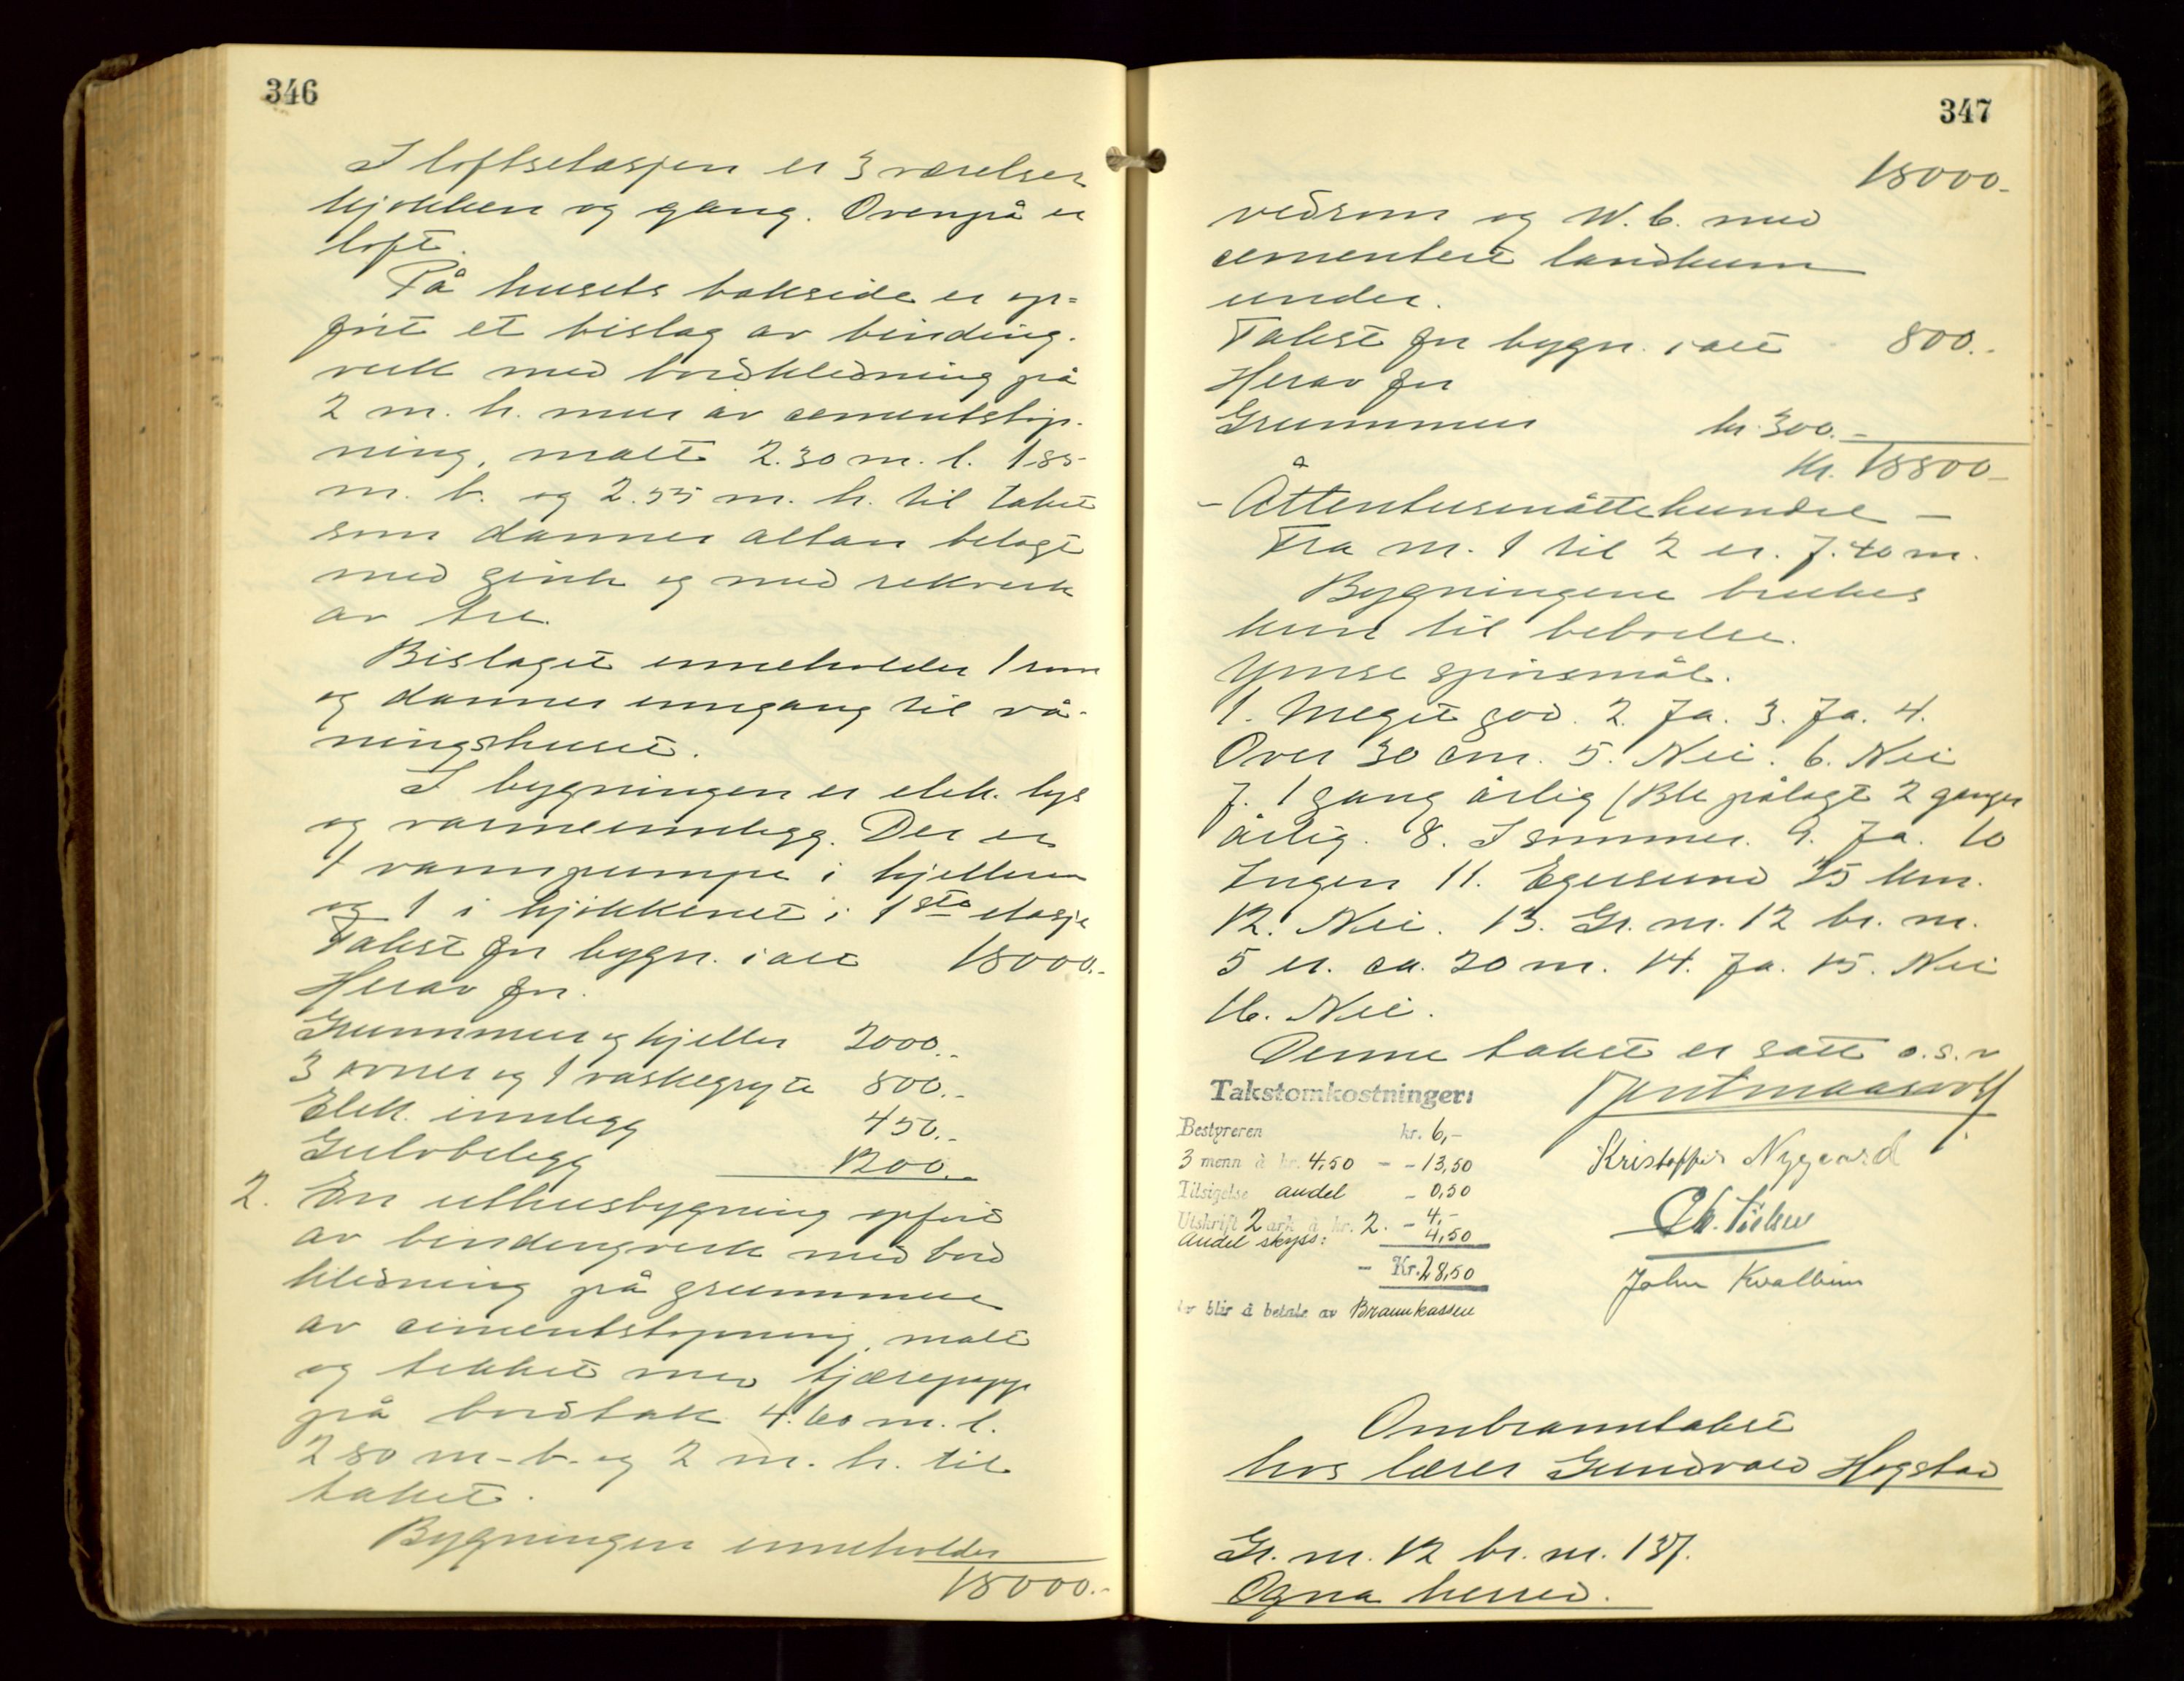 346
I loftsetasjen er 3 værelser
kjøkken og gang. Ovenpå er
loft.
På husets bakside er op=
ført et bislag av binding-
verk med bordkledning på
2 m. h. mur av cementstøp-
ning, malt 2.30 m. l. 1.85
m. b. og 2.55 m. h. til taket
som danner altan belagt
med zink og med rekverk
av tre.
Bislaget inneholder 1 rum
og danner inngang til vå-
ningshuset.
I bygningen er elek. lys
og varmeinnlegg. Der er
1 vannpumpe i kjelleren
og 1 i kjøkkenet i 1ste etasje
Takst for bygn. i alt 18000.-
Herav for
Grunnmur og kjeller 2000.-
3 ovner og 1 vaskegryte 800.-
Elek. innlegg 450.-
Gulvbelegg 1200.-
2. En uthusbygning opført
av bindingverk med bord
kledning på grunnmur
av cimentstøpning, malt
og tekket med tjærepapp
på bordtak 4.60 m. l.
2 80 m. b. og 2 m. h. til
taket.
Bygningen inneholder
18000.-
347
18000.-
vedrom og W. C. med
cementert landkum
under.
Takst for bygn. i alt 800.-
Herav for
Grunnmur kr. 300.-
Kr. 18800.-
- Åttentusenåttehundre -
Fra nr. 1 til 2 er. 7.40 m.
Bygningene brukes
kun til beboelse.
Ymse spørsmål.
1. Meget god. 2. Ja. 3. Ja. 4.
Over 30 cm. 5. Nei. 6. Nei
7. 1 gang årlig (Ble pålagt 2 ganger
årlig. 8. I sommer. 9. Ja. 10
Ingen 11. Egersund 25 km.
12. Nei. 13. Gr. nr. 12 br. nr.
5 er. ca. 20 m. 14. Ja. 15. Nei
16. Nei.
Denne takst er satt o.s.v
Takstomkostninger:
Bestyreren kr. 6,-
3 menn à kr. 4,50 - - 13,50
Tilsigelse andel - 0,50
Utskrift 2 ark à kr. 2. - 4,-
andel skyss: 4,50
- Kr. 28,50
som blir å betale av Brannkassen
Kristoffer Nygaard
John Kvalbein
Ombranntakst
hos lærer Gundvald Høgstad
Gr. nr. 12 br. nr. 137.
Ogna herred.